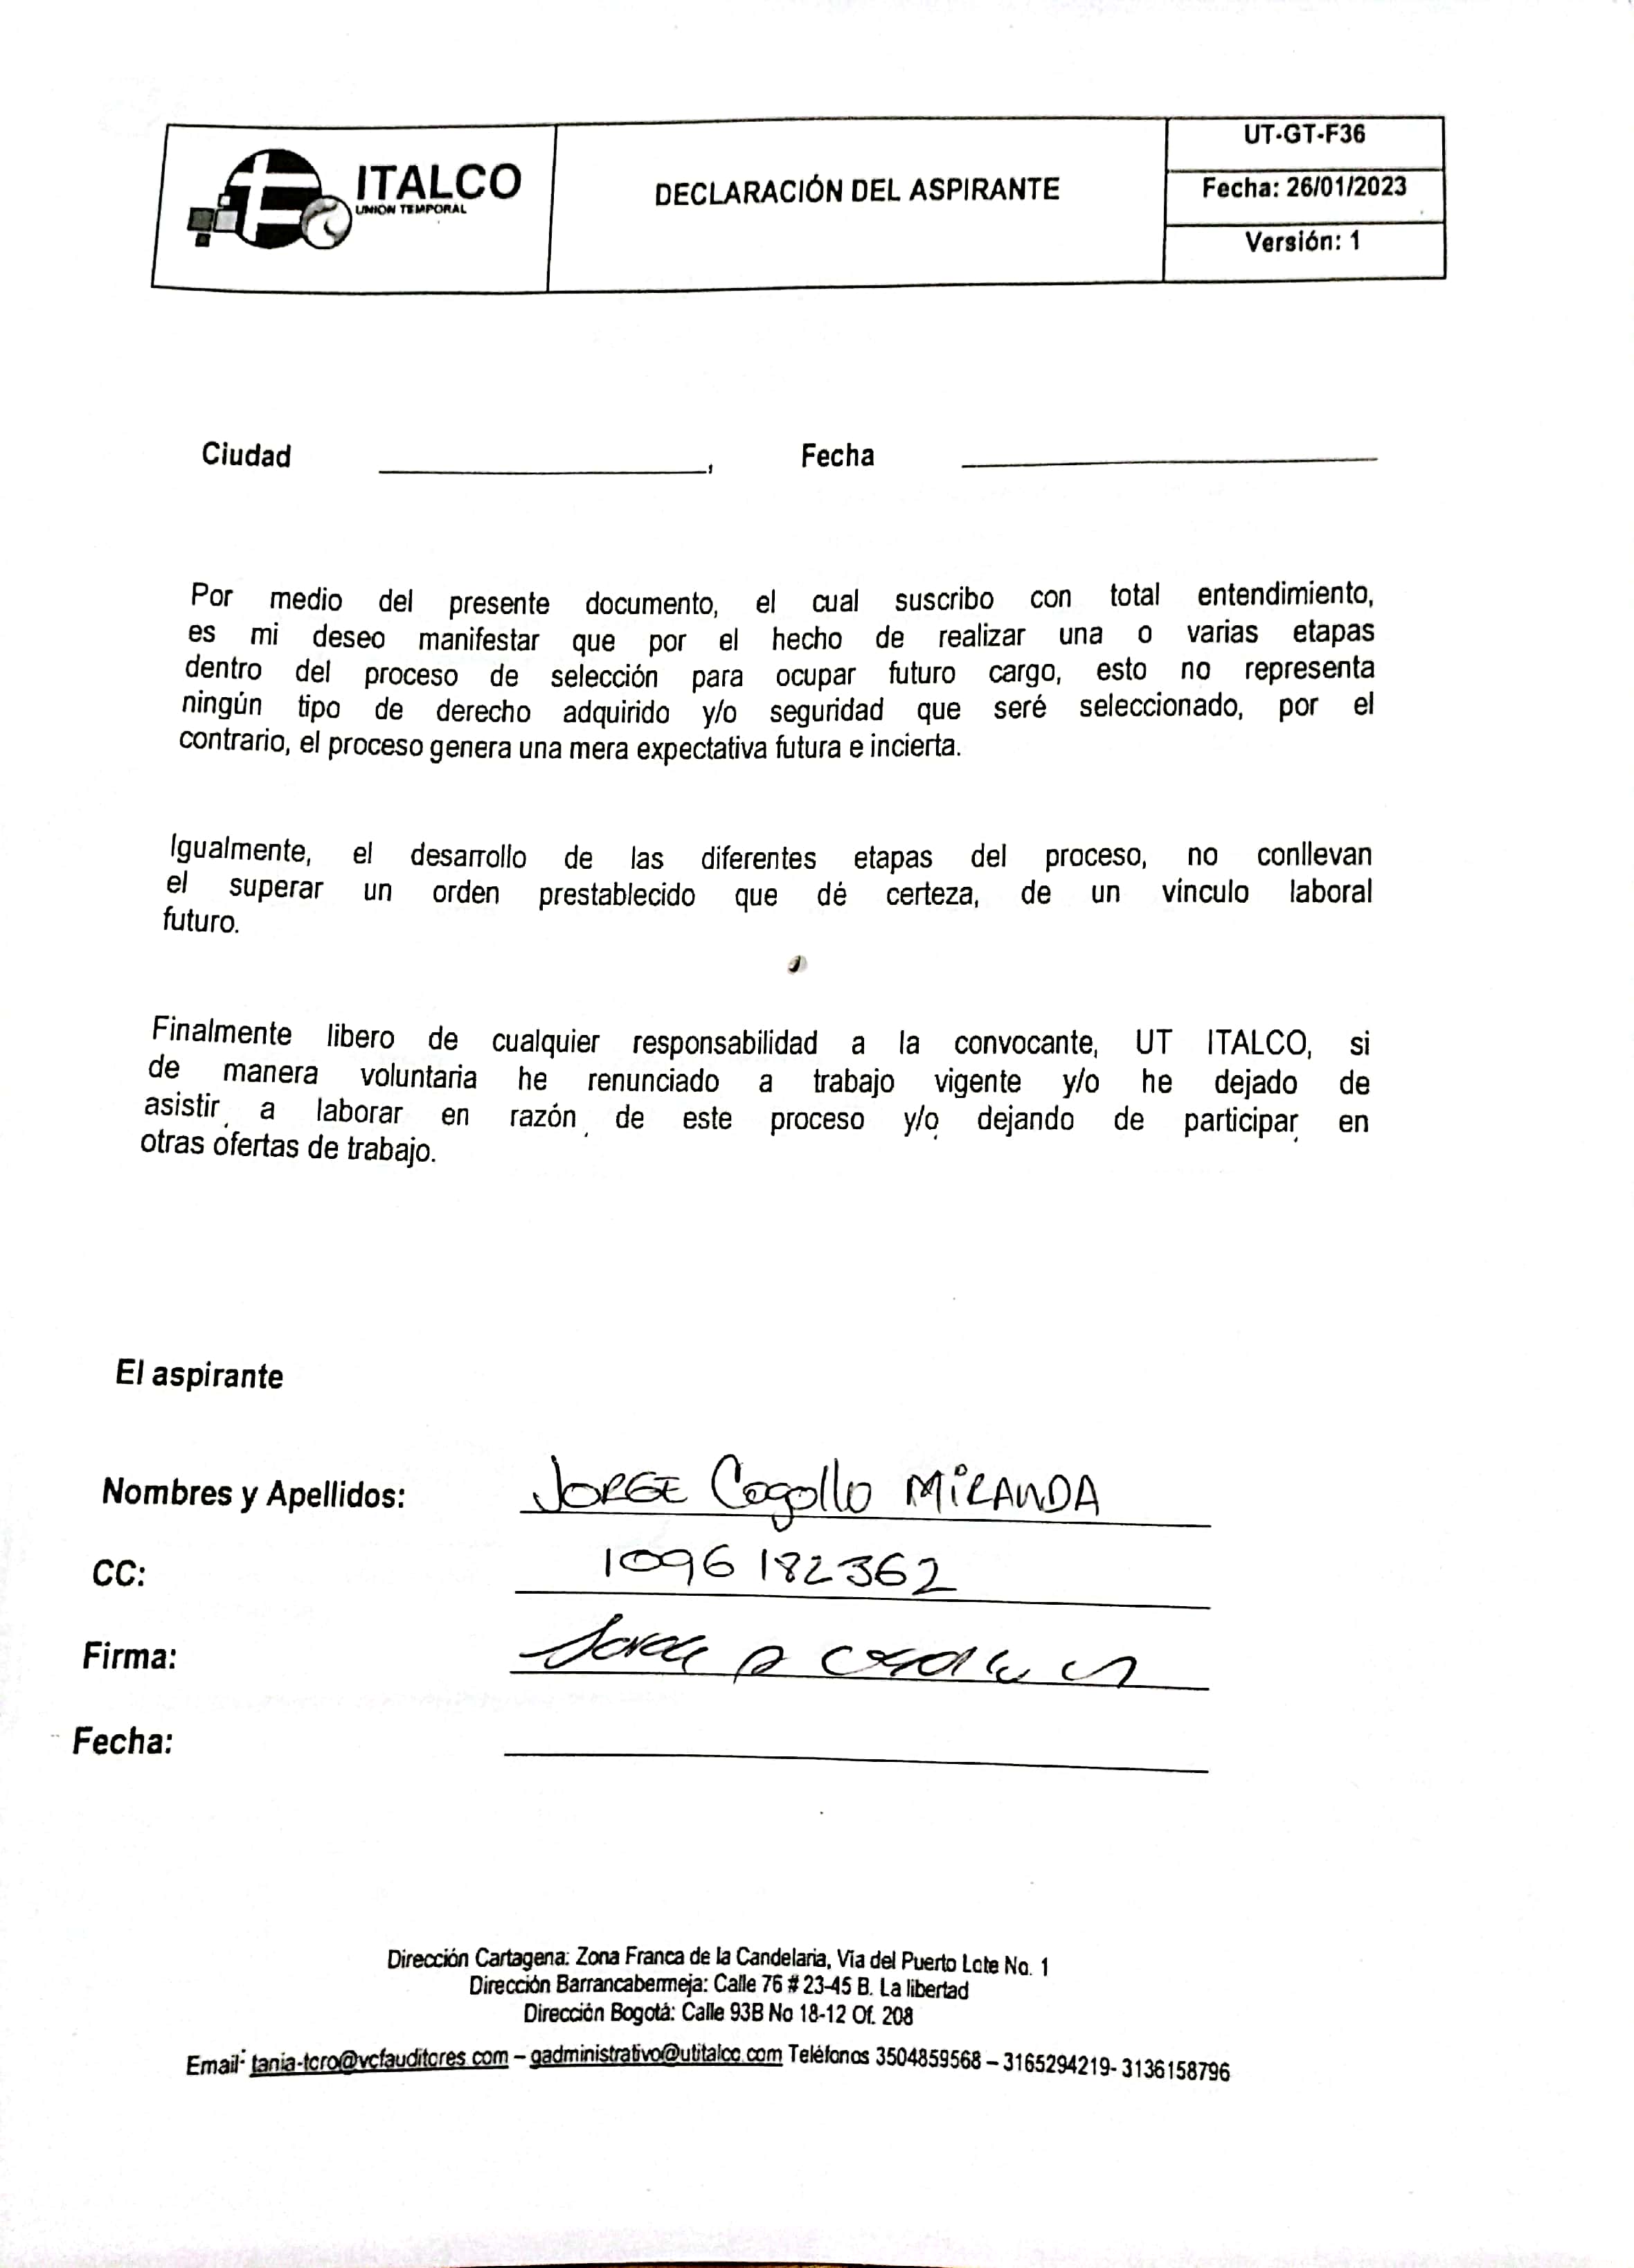 ITALCO
UNION TEMPORAL
DECLARACIÓN DEL ASPIRANTE
UT-GT-F36
Fecha: 26/01/2023
Versión: 1
Ciudad , Fecha
Por medio del presente documento, el cual suscribo con total entendimiento,
es mi deseo manifestar que por el hecho de realizar una o varias etapas
dentro del proceso de selección para ocupar futuro cargo, esto no representa
ningún tipo de derecho adquirido y/o seguridad que seré seleccionado, por el
contrario, el proceso genera una mera expectativa futura e incierta.
Igualmente, el desarrollo de las diferentes etapas del proceso, no conllevan
el superar un orden prestablecido que dé certeza, de un vínculo laboral
futuro.
Finalmente libero de cualquier responsabilidad a la convocante, UT ITALCO, si
de manera voluntaria he renunciado a trabajo vigente y/o he dejado de
asistir a laborar en razón de este proceso y/o dejando de participar en
otras ofertas de trabajo.
El aspirante
Nombres y Apellidos: JORGE Cogollo MIRANDA
CC: 1096182362
Firma:
Fecha:
Dirección Cartagena: Zona Franca de la Candelaria, Via del Puerto Lote No. 1
Dirección Barrancabermeja: Calle 76 # 23-45 B. La libertad
Dirección Bogotá: Calle 93B No 18-12 Of. 208
Email: tania-toro@vcfauditores.com – gadministrativo@utitalco.com Teléfonos 3504859568 – 3165294219- 3136158796